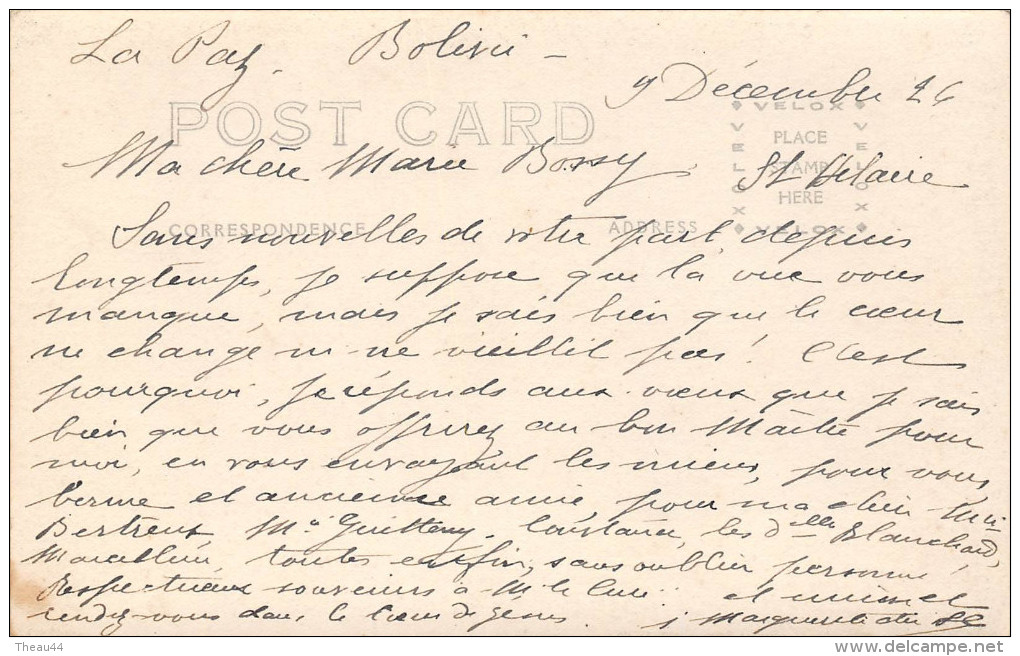 La Paz - Bolivie -
9 Décembre 26
POST CARD
VELOX
VELOX
VELOX
VELOX
PLACE
STAMP
HERE
Ma chère Marie Bossy, St Hilaire
CORRESPONDENCE
ADDRESS
Sans nouvelles de votre part depuis
longtemps, je suppose que la vue vous
manque, mais je sais bien que le cœur
ne change ni ne vieillit pas! C'est
pourquoi, je réponds aux vœux que je sais
bien que vous offrirez au bon Maître pour
moi, en vous envoyant les miens, pour vous,
bonne et ancienne amie, pour ma chère
Bertreux, Guitteny, Constance, les delles Blanchard,
toutes enfin, sans oublier personne,
Respectueux souvenirs à Mr le Curé. et
rendez-vous dans le Cœur de Jésus. Marguerite du
Theau44
delcampe.net